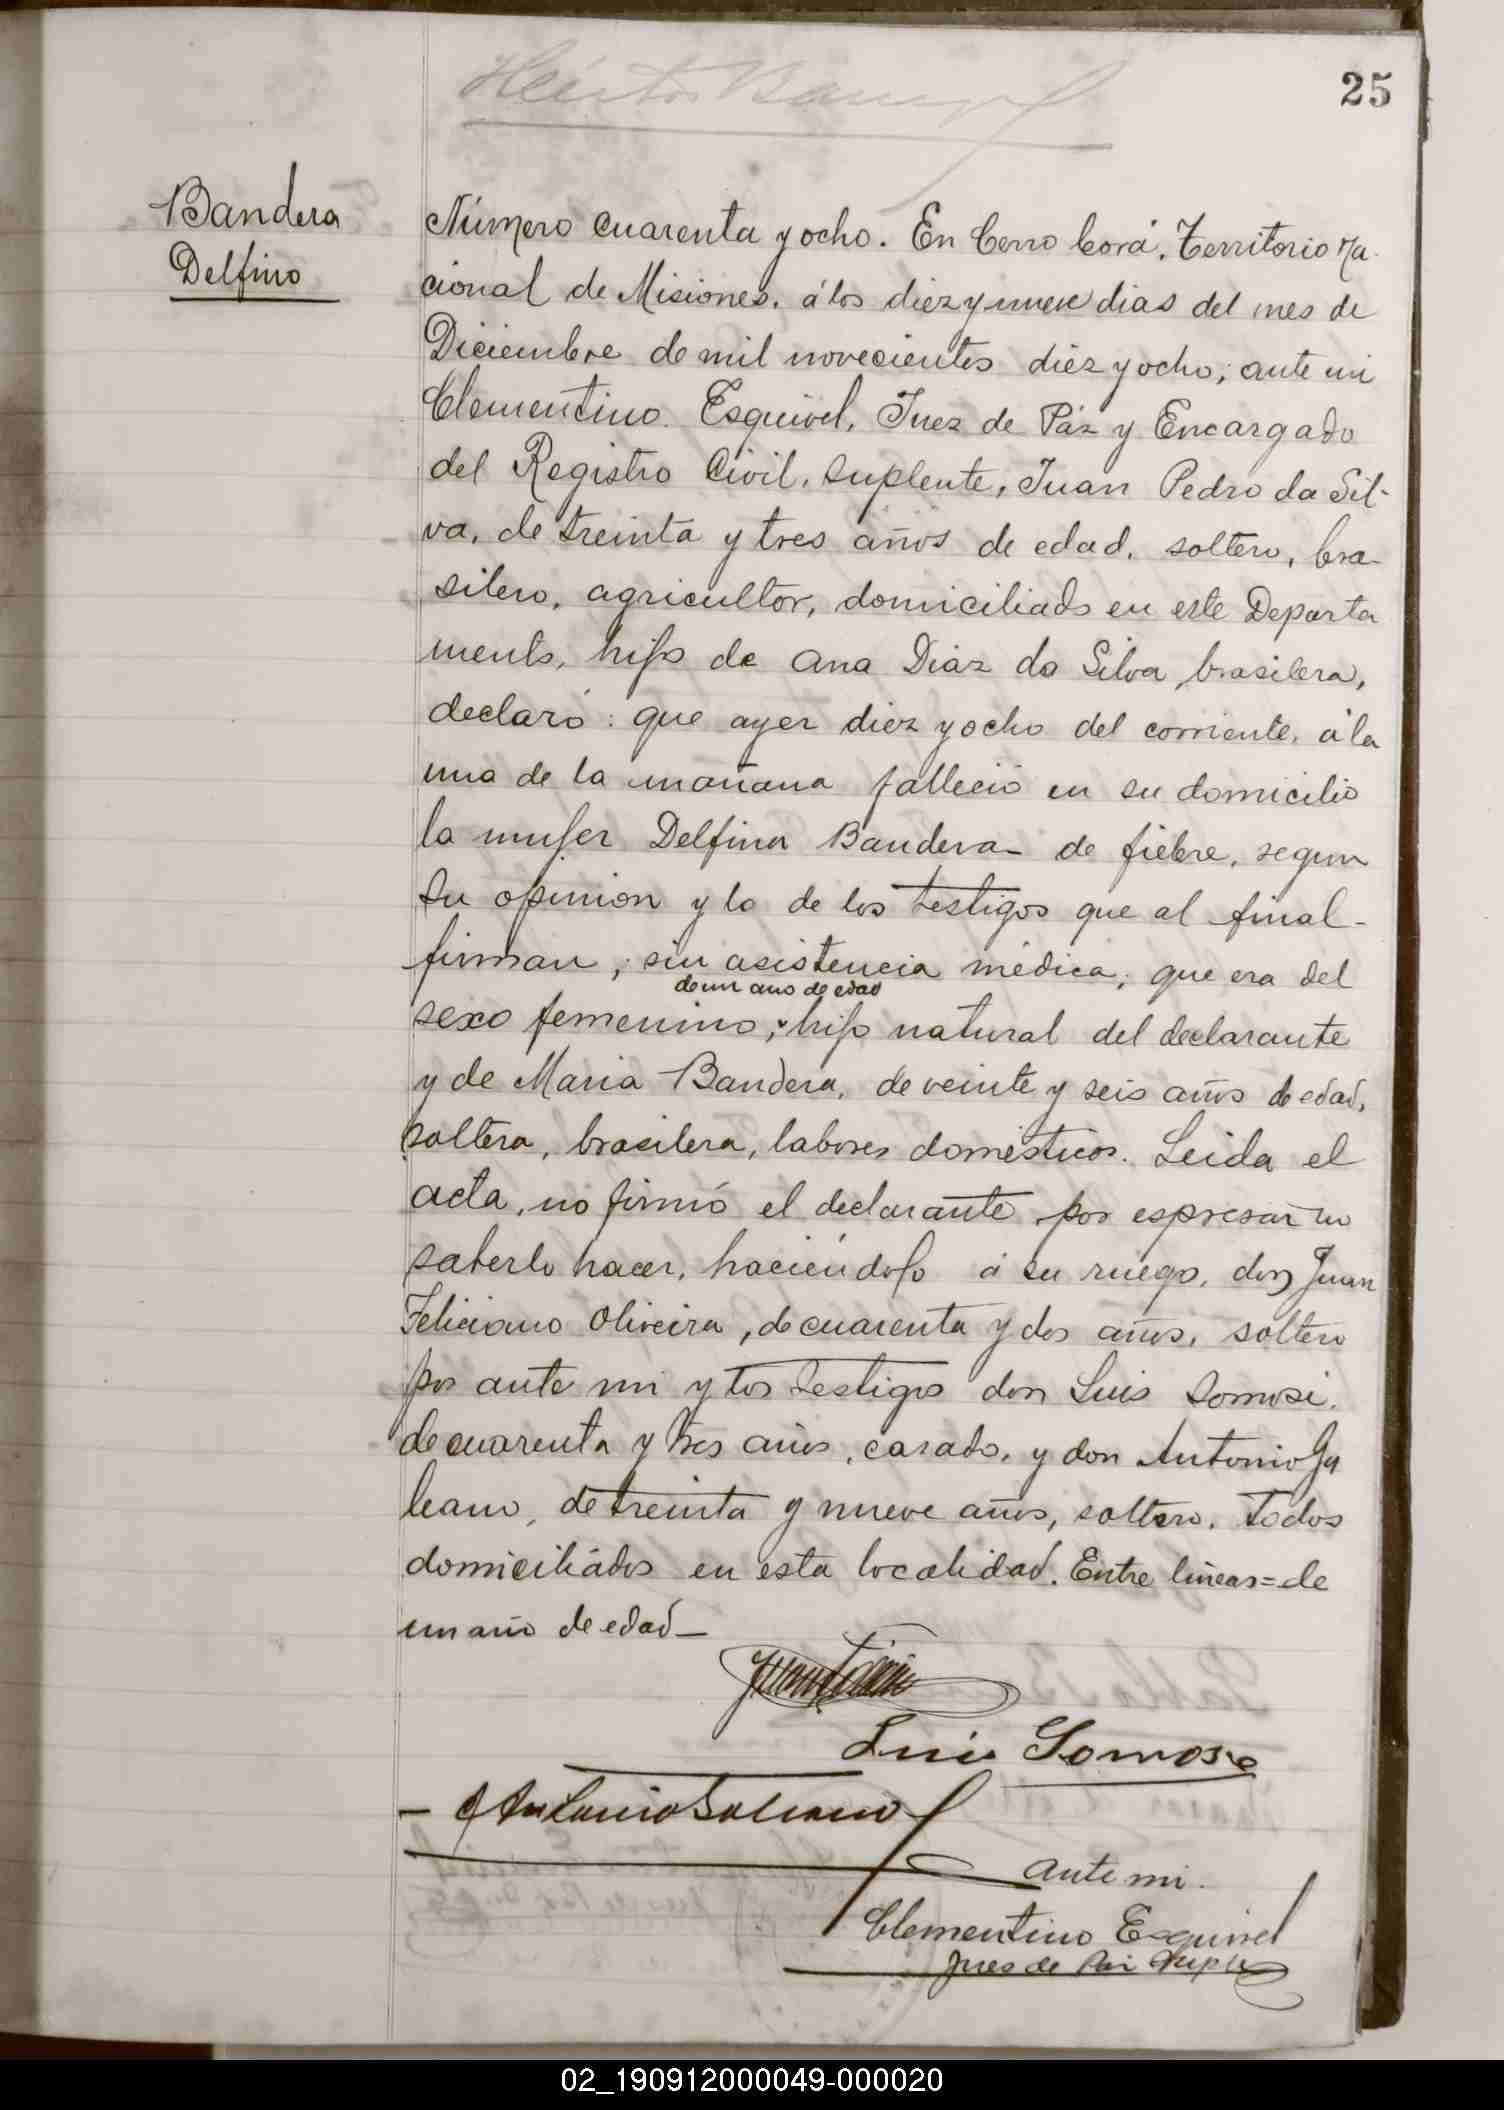 25
Bandera
Delfino
Número cuarenta y ocho. En Cerro Corá, Territorio Na-
cional de Misiones, á los diez y nueve dias del mes de
Diciembre de mil novecientos diez y ocho; ante mi
Clementino Esquivel, Juez de Páz y Encargado
del Registro Civil, Suplente, Juan Pedro da Sil-
va, de treinta y tres años de edad, soltero, bra-
silero, agricultor, domiciliado en este Departa
mento, hijo de Ana Diaz da Silva, brasilera,
declaró: que ayer diez y ocho del corriente, á la
una de la mañana falleció en su domicilio
la mujer Delfina Bandera de fiebre, segun
su opinion y la de los testigos que al final
firman, sin asistencia médica; que era del
de un año de edad
sexo femenino, hijo natural del declarante
y de Maria Bandera, de veinte y seis años de edad,
soltera, brasilera, labores domésticos. Leida el
acta, no firmó el declarante por espresar no
saberlo hacer, haciéndolo á su ruego, don Juan
Feliciano Oliveira, de cuarenta y dos años, soltero
por ante mi y los testigos don Luis Somosi,
de cuarenta y tres años, casado, y don Antonio Ga
leano, de treinta y nueve años, soltero, todos
domiciliádos en esta localidad. Entre lineas = de
un año de edad —
Luis Somosa
Antonio Galeano
Ante mi.
Clementino Esquivel
Juez de Paz Suple
02_190912000049-000020